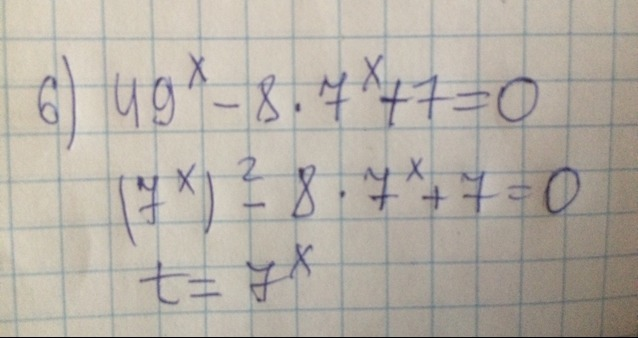 6) 49^x - 8 · 7^x + 7 = 0
(7^x)^2 - 8 · 7^x + 7 = 0
t = 7^x